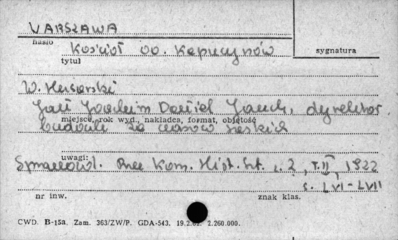 WARSZAWA
hasło
Kościół oo. Kapucynów
sygnatura
tytuł
W. Husarski
Jan Joachim Daniel Jauch, dyrektor
miejsce, rok wyd., nakładca, format, objętość
budowli za czasów saskich
uwagi:
Sprawozd. Prac Kom. Hist. Szt. z. 2, T. II 1922
s. LVI-LVII
nr inw.
znak klas.
CWD. B-15a. Zam. 363/ZW/P. GDA-543. 19.2. 2.260.000.